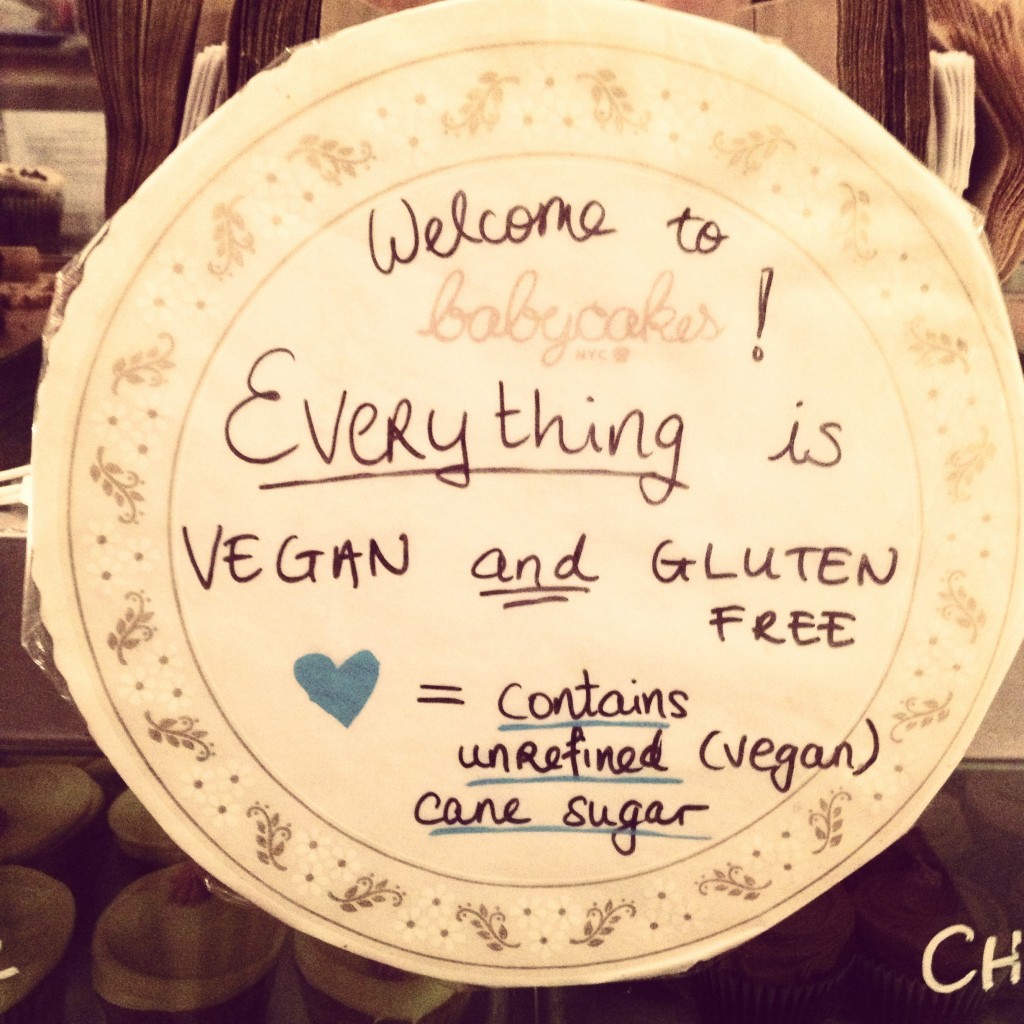 Welcome to
babycakes !
NYC
Everything is
VEGAN and GLUTEN
FREE
= contains
unrefined (vegan)
cane sugar
CH